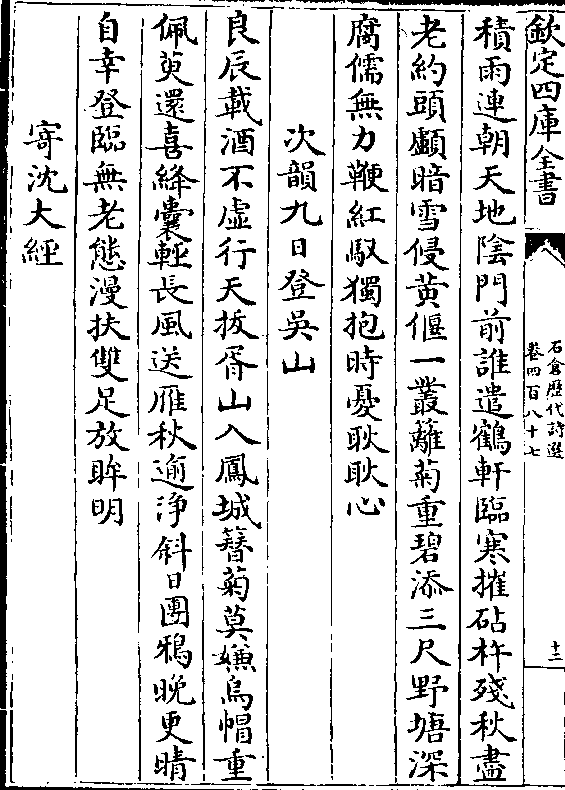 欽定四庫全書
石倉歷代詩選
卷四百八十七
十二
積雨連朝天地陰門前誰遣鶴軒臨寒摧砧杵殘秋盡
老約頭顱暗雪侵黃偃一叢離菊重碧添三尺野塘深
腐儒無力鞭紅馭獨抱時憂耿耿心
次韻九日登吳山
良辰載酒不虛行天拔胥山入鳳城簪菊莫嫌烏帽重
佩萸還喜絳囊輕長風送雁秋逾淨斜日團鴉晚更晴
自幸登臨無老態漫扶雙足放眸明
寄沈大經